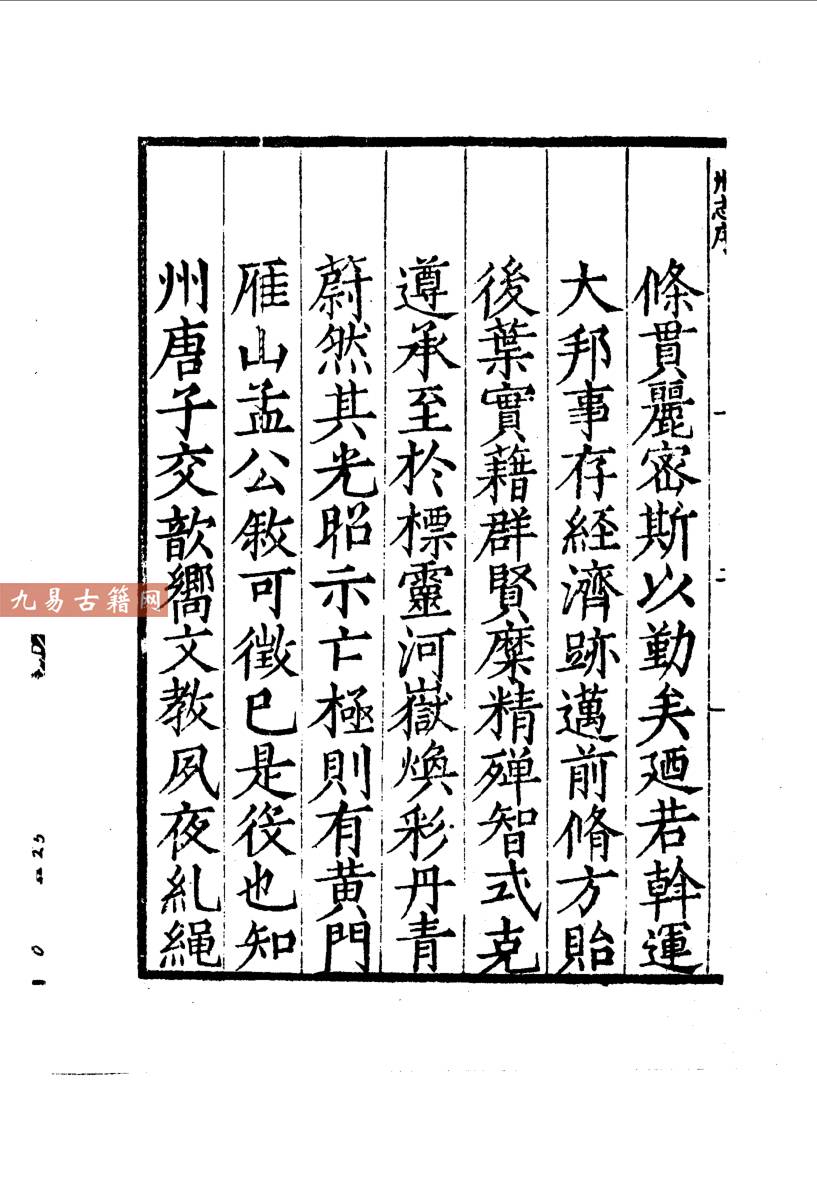 州志序
條貫麗密斯以勤矣廼若斡運
大邦事存經濟跡邁前脩方貽
後葉實藉群賢糜精殫智式克
遵承至於標靈河嶽煥彩丹青
蔚然其光昭示亡極則有黄門
雁山孟公敘可徵巳是役也知
州唐子交歆嚮文教夙夜糺繩
九易古籍网